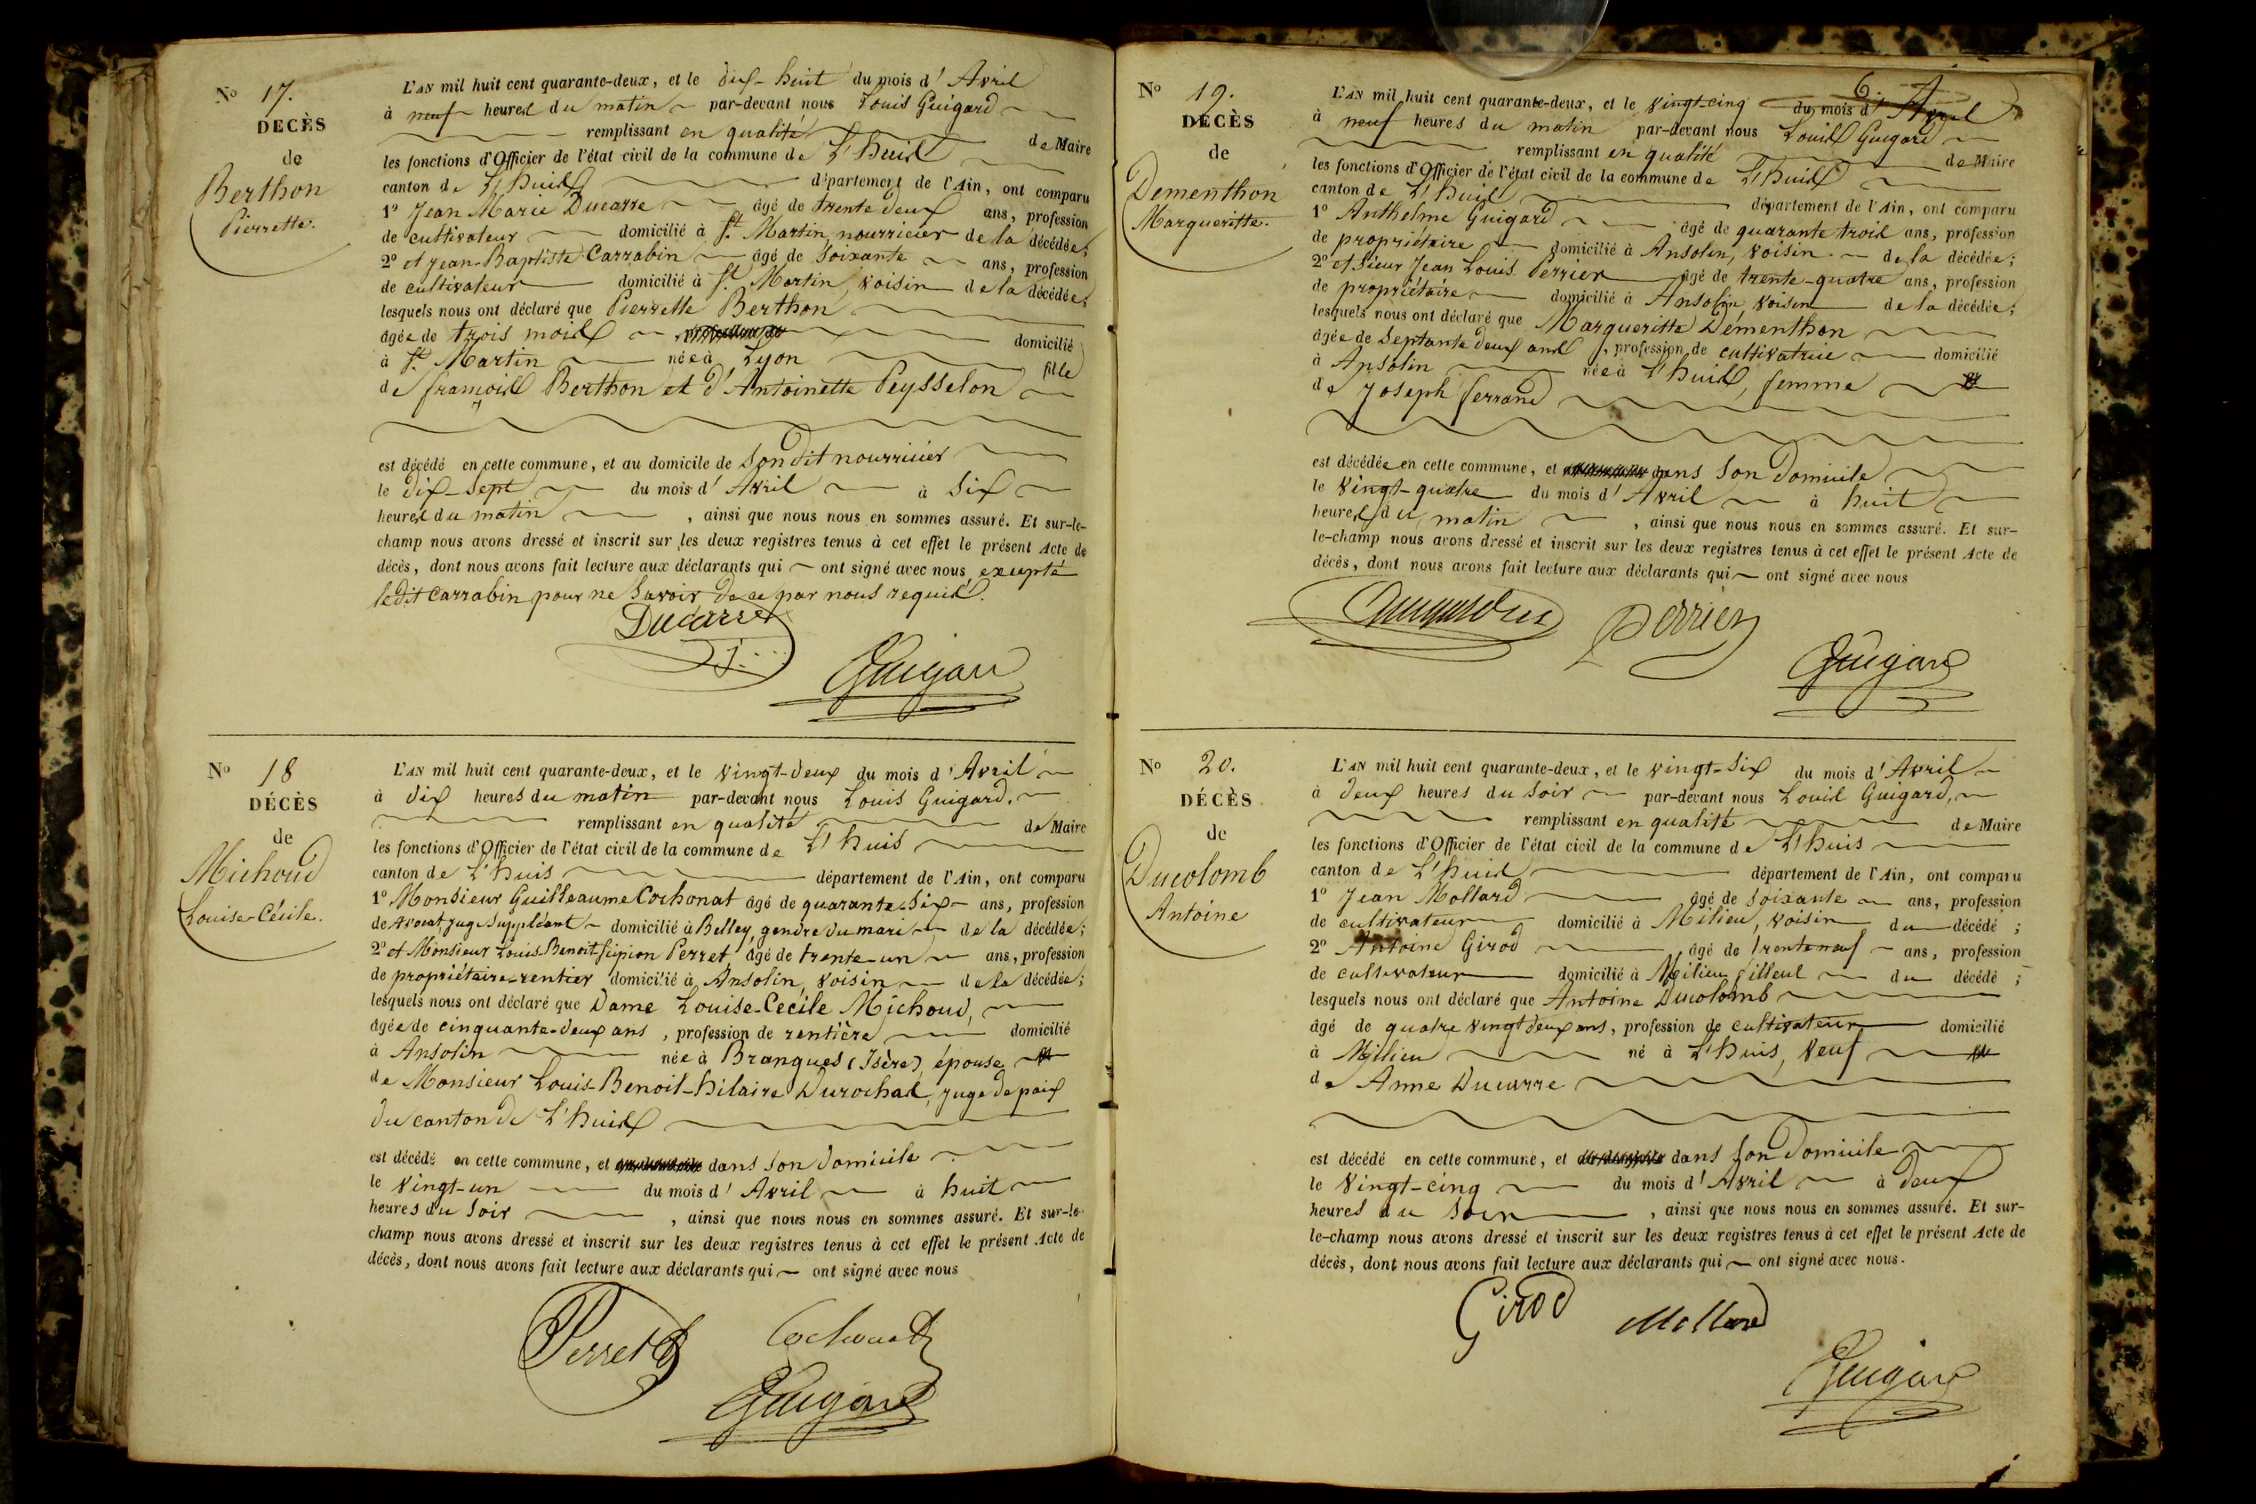 N° 17.
DECÈS
de
Berthon
Pierrette.
L'AN mil huit cent quarante-deux, et le dix-huit du mois d'Avril
à neuf heures du matin par-devant nous Louis Guigard
remplissant en qualité de Maire
les fonctions d'Officier de l'état civil de la commune de L'huis
canton de L'huis département de l'Ain, ont comparu
1° Jean Marie Ducarre âgé de trente deux ans, profession
de cultivateur domicilié à St. Martin, nourricier de la décédée;
2° et Jean-Baptiste Carrabin âgé de soixante ans, profession
de cultivateur domicilié à St. Martin, voisin de la décédée;
lesquels nous ont déclaré que Pierrette Berthon
âgée de trois mois domicilié
à St. Martin née à Lyon fille
de francois Berthon et d'Antoinette Peysselon
est décédé en cette commune, et au domicile de son dit nourricier
le dix-sept du mois d'Avril à six
heures du matin, ainsi que nous nous en sommes assuré. Et sur-le-
champ nous avons dressé et inscrit sur les deux registres tenus à cet effet le présent Acte de
décès, dont nous avons fait lecture aux déclarants qui ont signé avec nous, excepté
ledit Carrabin pour ne savoir de ce par nous requis.
Ducarre
Guigard
N° 18
DÉCÈS
de
Michoud
Louise-Cécile.
L'AN mil huit cent quarante-deux, et le vingt-deux du mois d'Avril
à dix heures du matin par-devant nous Louis Guigard,
remplissant en qualité de Maire
les fonctions d'Officier de l'état civil de la commune de L'huis
canton de L'huis département de l'Ain, ont comparu
1° Monsieur Guilleaume Cochonat âgé de quarante-six ans, profession
de avocat, juge suppléant domicilié à Belley, gendre du mari de la décédée;
2° et Monsieur Louis Benoit Scipion Perret, âgé de trente-un ans, profession
de propriétaire-rentier domicilié à Ansolin, voisin de la décédée;
lesquels nous ont déclaré que Dame Louise-Cecile Michoud,
âgée de cinquante-deux ans, profession de rentière domicilié
à Ansolin née à Brangues (Isère), épouse
de Monsieur Louis-Benoit-hilaire Durochat, juge de paix
du canton de L'huis
est décédé en cette commune, et dans son domicile
le vingt-un du mois d'Avril à huit
heures du soir, ainsi que nous nous en sommes assuré. Et sur-le-
champ nous avons dressé et inscrit sur les deux registres tenus à cet effet le présent Acte de
décès, dont nous avons fait lecture aux déclarants qui ont signé avec nous
Perret
Cochonat
Guigard
6.
N° 19.
DÉCÈS
de
Dementhon
Margueritte.
L'AN mil huit cent quarante-deux, et le vingt-cinq du mois d'Avril
à neuf heures du matin par-devant nous Louis Guigard
remplissant en qualité de Maire
les fonctions d'Officier de l'état civil de la commune de L'huis
canton de L'huis département de l'Ain, ont comparu
1° Anthelme Guigard âgé de quarante trois ans, profession
de propriétaire domicilié à Ansolin, voisin de la décédée;
2° et Sieur Jean Louis Perrier âgé de trente-quatre ans, profession
de propriétaire domicilié à Ansolin, voisin de la décédée;
lesquels nous ont déclaré que Margueritte Démenthon
âgée de septante deux ans, profession de cultivatrice domicilié
à Ansolin née à L'huis, femme
de Joseph ferrand
est décédée en cette commune, et dans son domicile
le vingt-quatre du mois d'Avril à huit
heures du matin, ainsi que nous nous en sommes assuré. Et sur-
le-champ nous avons dressé et inscrit sur les deux registres tenus à cet effet le présent Acte de
décès, dont nous avons fait lecture aux déclarants qui ont signé avec nous
Perrier
Guigard
N° 20.
DÉCÈS
de
Ducolomb
Antoine
L'AN mil huit cent quarante-deux, et le vingt-six du mois d'Avril
à deux heures du soir par-devant nous Louis Guigard,
remplissant en qualité de Maire
les fonctions d'Officier de l'état civil de la commune de L'huis
canton de L'huis département de l'Ain, ont comparu
1° Jean Mollard âgé de soixante ans, profession
de cultivateur domicilié à Milieu, voisin du décédé;
2° Antoine Girod âgé de trente neuf ans, profession
de cultivateur domicilié à Milieu, filleul du décédé;
lesquels nous ont déclaré que Antoine Ducolomb
âgé de quatre vingt deux ans, profession de cultivateur domicilié
à Milieu né à L'huis, veuf
de Anne Ducarre
est décédé en cette commune, et dans son domicile
le vingt-cinq du mois d'Avril à deux
heures du soir, ainsi que nous nous en sommes assuré. Et sur-
le-champ nous avons dressé et inscrit sur les deux registres tenus à cet effet le présent Acte de
décès, dont nous avons fait lecture aux déclarants qui ont signé avec nous.
Girod
Mollard
Guigard